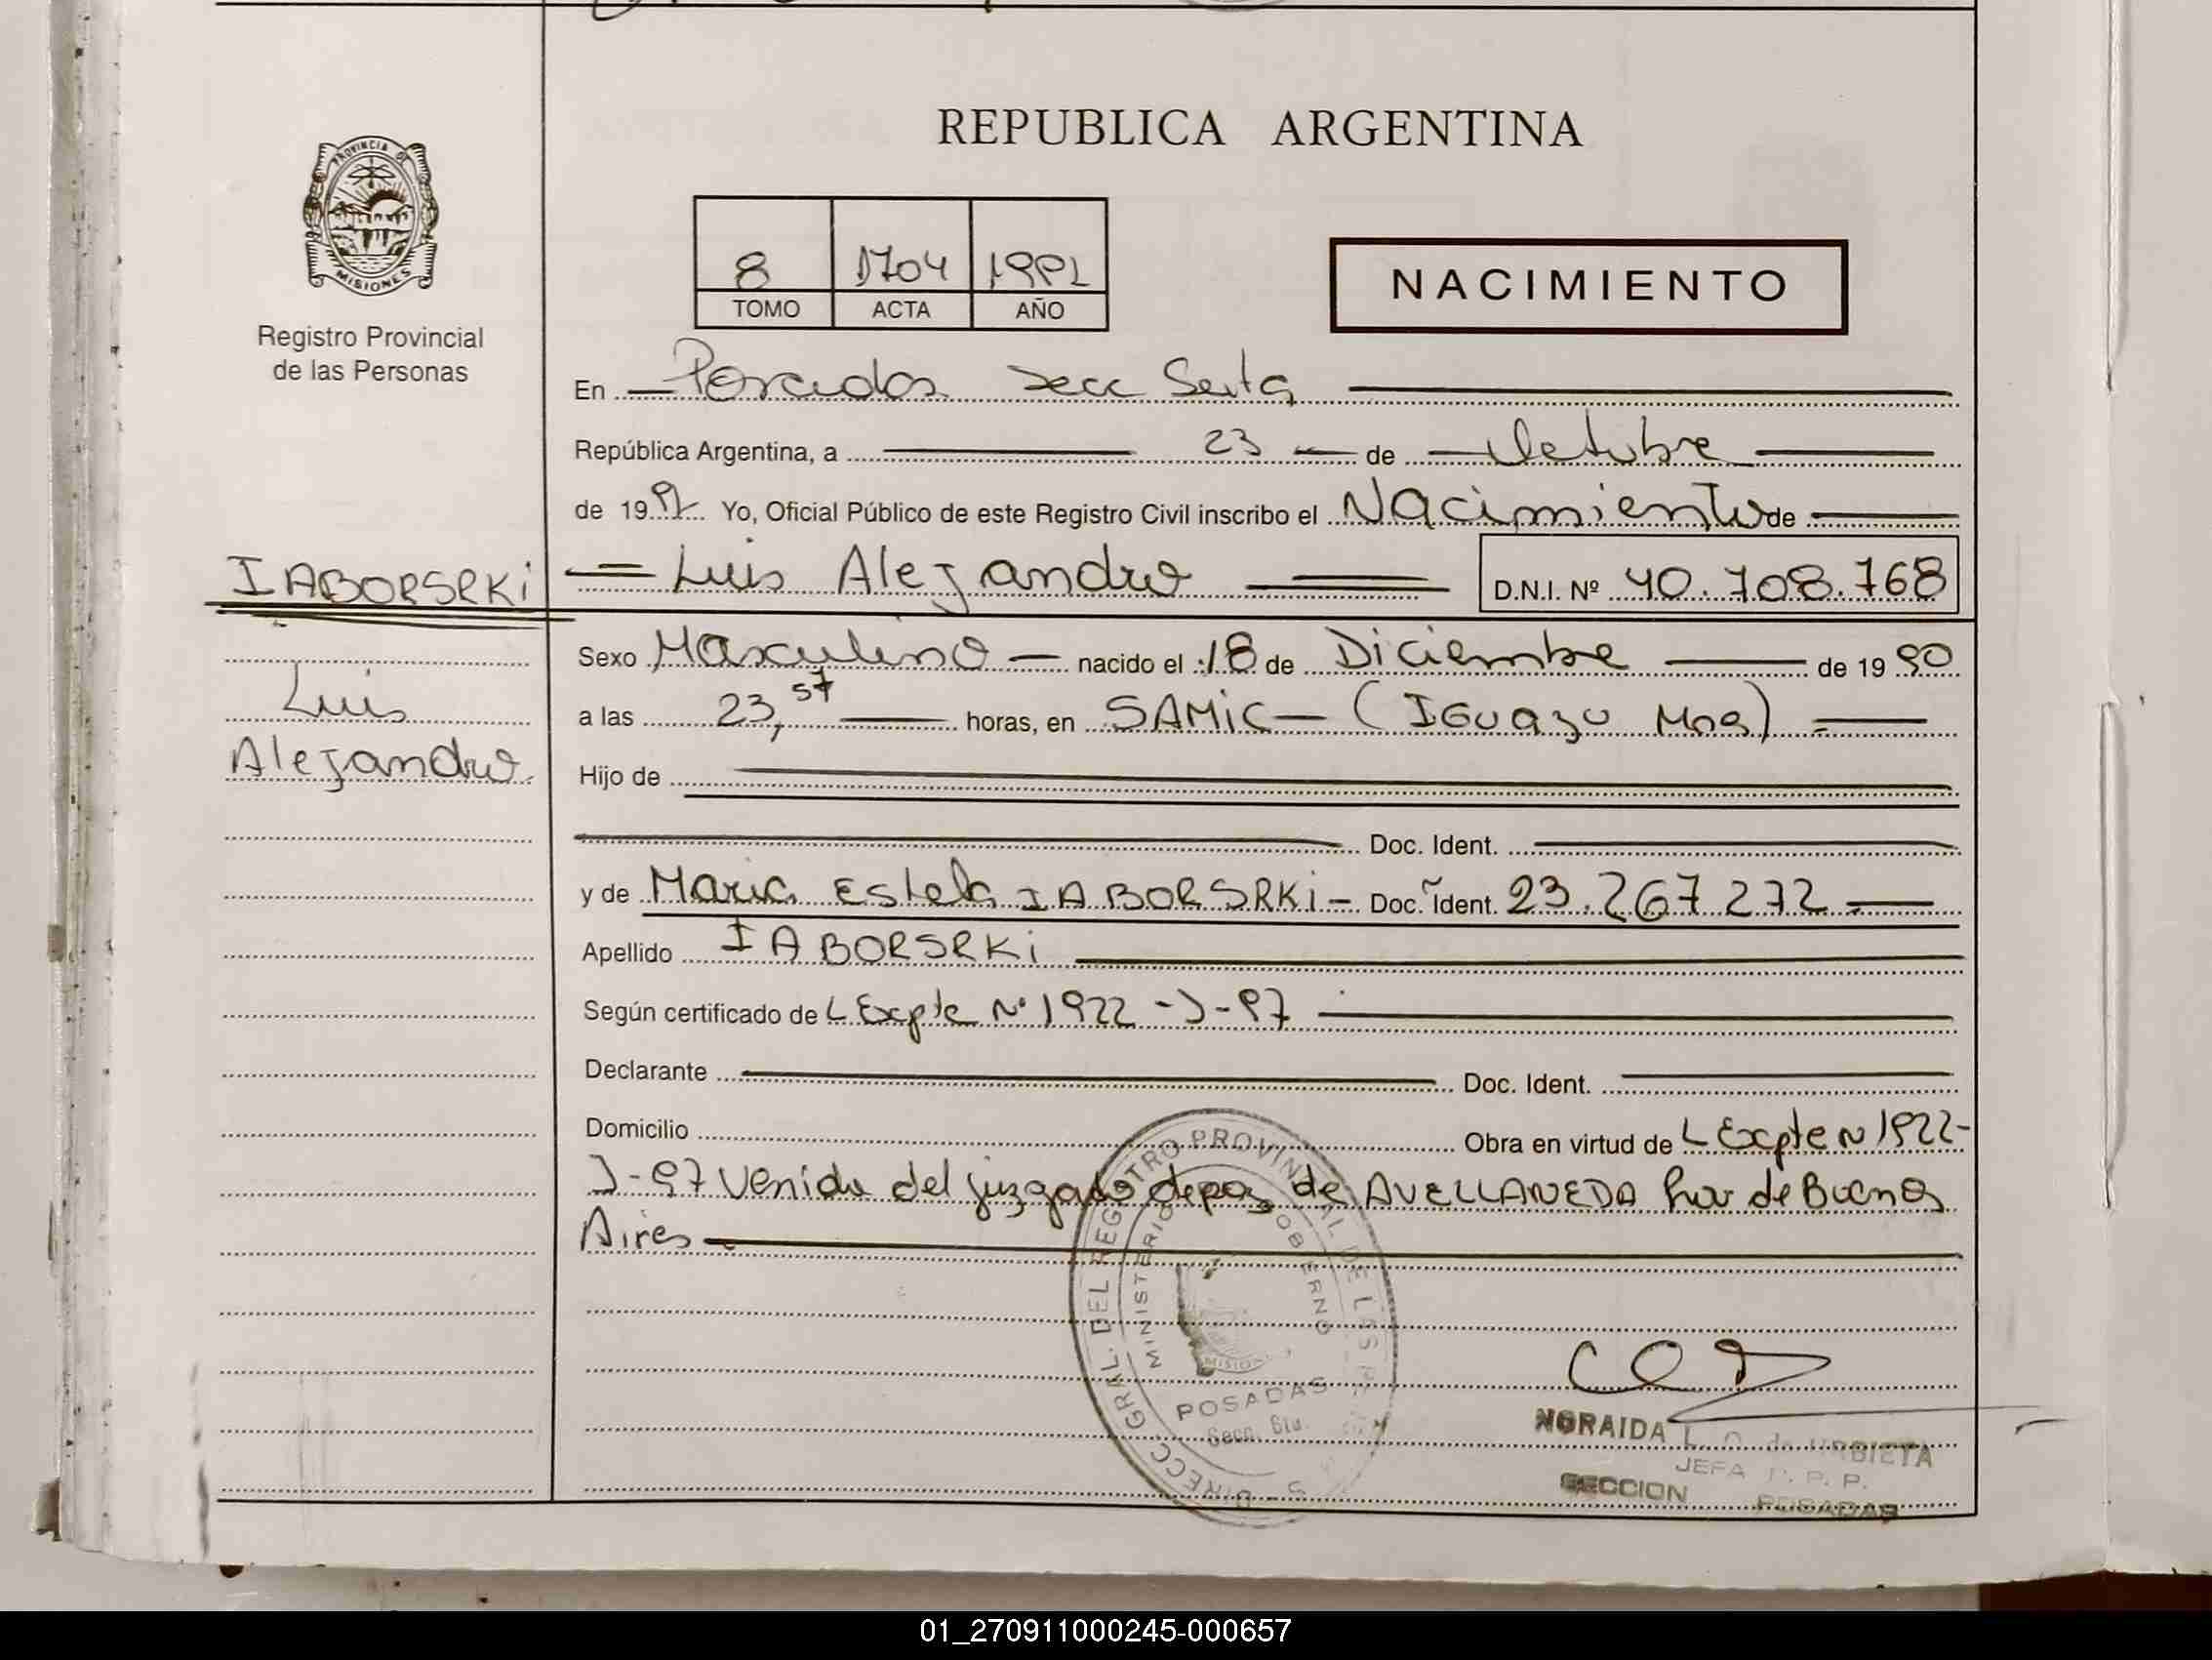 REPUBLICA ARGENTINA
PROVINCIA DE
MISIONES
Registro Provincial
de las Personas
8 1704
TOMO ACTA AÑO
NACIMIENTO
En Posadas Secc Sexta
República Argentina, a 23 de Octubre
de 19 Yo, Oficial Público de este Registro Civil inscribo el Nacimiento de
IABORSRKi
Luis Alejandro D.N.I. Nº 40.708.768
Luis
Alejandro
Sexo Masculino nacido el 18 de Diciembre de 19 90
a las 23,57 horas, en SAMIC - (IGuazu Mnes)
Hijo de
Doc. Ident.
y de Maria Estela IABORSRKi - Doc. Ident. 23.267.272
Apellido IABORSRKi
Según certificado de L Expte Nº 1922 -J-97
Declarante Doc. Ident.
Domicilio Obra en virtud de L Expte N 1922-
J-97 Venido del juzgado de paz de AVELLANEDA Prov de Buenos
Aires
DIRECC. GRAL. DEL REGISTRO PROVINCIAL DE LAS
MINISTERIO GOBIERNO
POSADAS
Secc. 6ta.
NORAIDA L. O. de URBIETA
JEFA R. P. P.
SECCION POSADAS
01_270911000245-000657